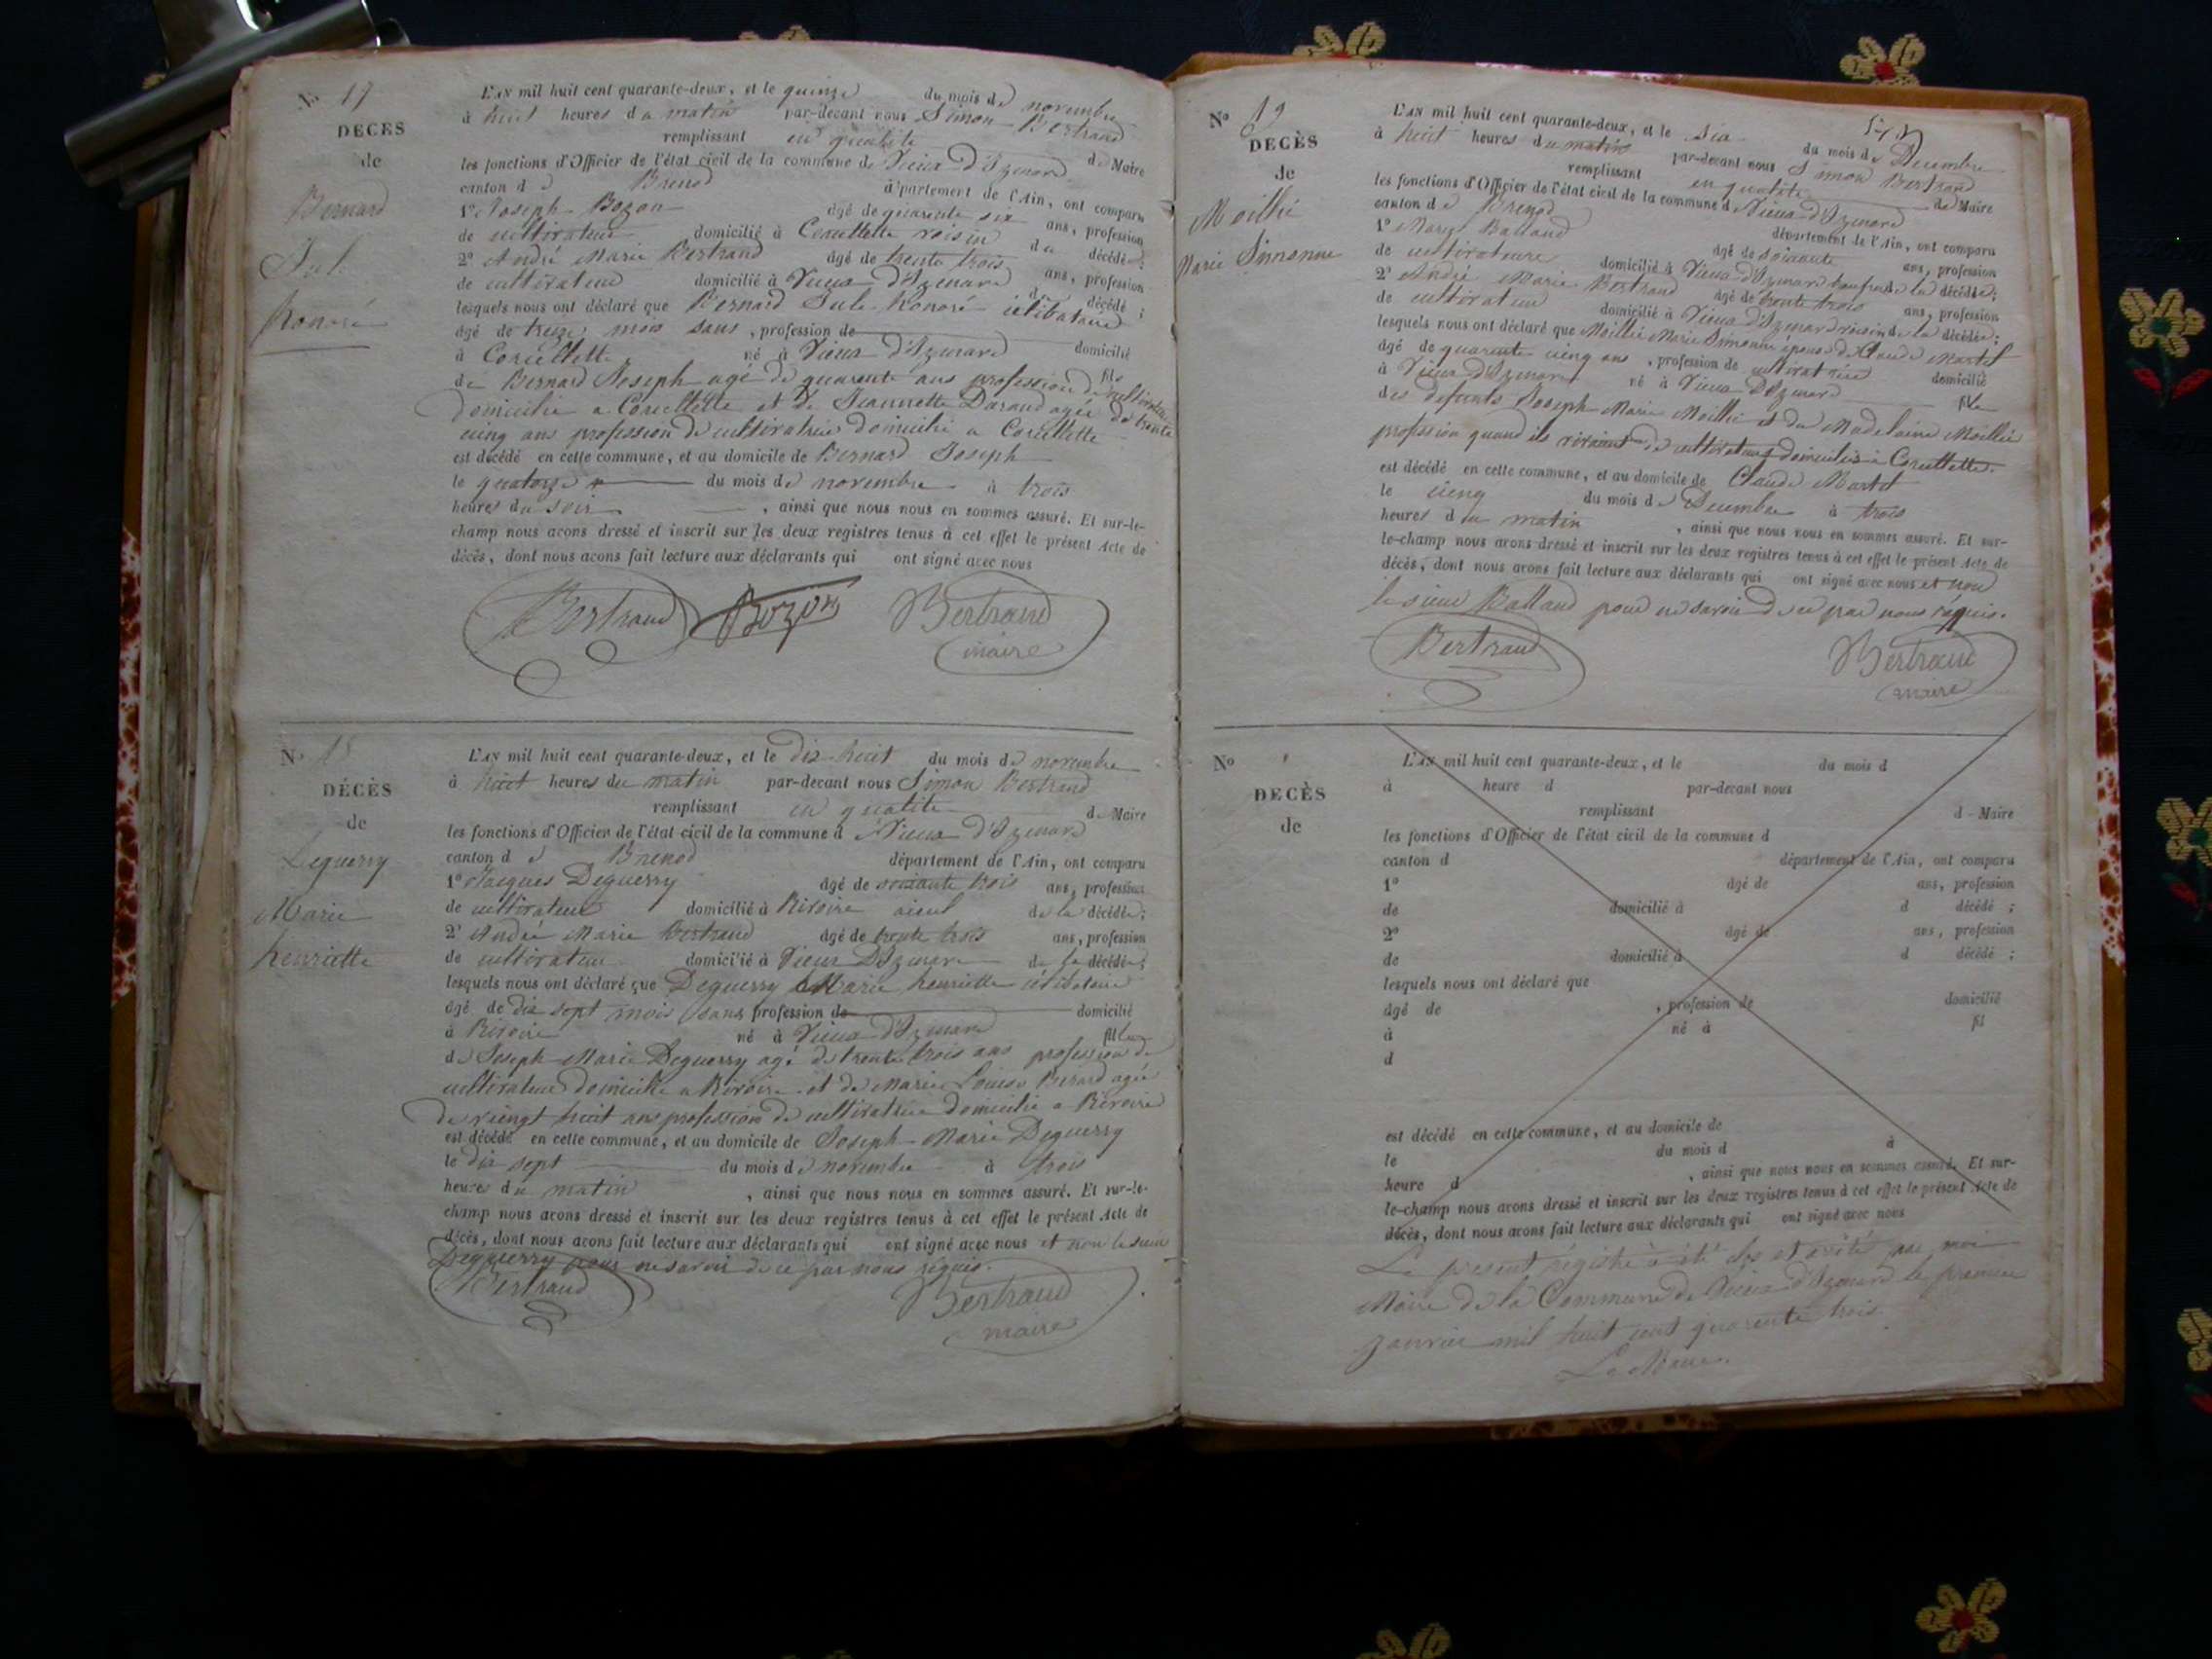 N° 17
DECES
de
Bernard
Jule
honoré
L'AN mil huit cent quarante-deux, et le quinze du mois de novembre
à huit heures du matin par-devant nous Simon Bertrand
remplissant en qualité de Maire
les fonctions d'Officier de l'état civil de la commune de Vieux d'Izenave
canton de Brenod département de l'Ain, ont comparu
1° Joseph Bozon âgé de quarente six ans, profession
de cultivateur domicilié à Corcellette voisin du décédé;
2° André Marie Bertrand âgé de trente trois ans, profession
de cultivateur domicilié à Vieux d'Izenave d décédé;
lesquels nous ont déclaré que Bernard Jule honoré célibataire
âgé de treize mois sans, profession de domicilié
à Corcellette né à Vieux d'Izenave fils
de Bernard Joseph agé de quarente ans profession de cultivateur
domicilié a Corcellette et de Jeannette Darand agée de trente
cinq ans profession de cultivatrice domicilié a Corcellette
est décédé en cette commune, et au domicile de Bernard Joseph
le quatorze du mois de novembre à trois
heures du soir, ainsi que nous nous en sommes assuré. Et sur-le-
champ nous avons dressé et inscrit sur les deux registres tenus à cet effet le présent Acte de
décès, dont nous avons fait lecture aux déclarants qui ont signé avec nous
Bertrand Bozon Bertrand
maire
N° 18
DÉCÈS
de
Deguerry
Marie
henriette
L'AN mil huit cent quarante-deux, et le dix huit du mois de novembre
à huit heures du matin par-devant nous Simon Bertrand
remplissant en qualité de Maire
les fonctions d'Officier de l'état civil de la commune d Vieux d'Izenave
canton de Brenod département de l'Ain, ont comparu
1° Jacques Deguerry âgé de soixante trois ans, profession
de cultivateur domicilié à Rivoire aieul de la décédée;
2° André Marie Bertrand âgé de trente trois ans, profession
de cultivateur domicilié à Vieux D'Izenave de la décédée;
lesquels nous ont déclaré que Deguerry Marie henriette célibataire
âgé de dix sept mois sans profession de domicilié
à Rivoire né à Vieux d'Izenave fille
de Joseph Marie Deguerry agé de trente trois ans profession de
cultivateur domicilié a Rivoire et de Marie Louise Berard agée
de viengt huit ans profession de cultivatrice domicilié a Rivoire
est décédé en cette commune, et au domicile de Joseph Marie Deguerry
le dix sept du mois de novembre à trois
heures du matin, ainsi que nous nous en sommes assuré. Et sur-le-
champ nous avons dressé et inscrit sur les deux registres tenus à cet effet le présent Acte de
décès, dont nous avons fait lecture aux déclarants qui ont signé avec nous et non le sieur
Deguerry pour ne savoir de ce par nous requis.
Bertrand Bertrand
maire
N° 19
DECÈS
de
Moillié
Marie Simonne
L'AN mil huit cent quarante-deux, et le Six du mois de Decembre
à huit heures du matin par-devant nous Simon Bertrand
remplissant en qualité de Maire
les fonctions d'Officier de l'état civil de la commune d Vieux d'Izenave
canton de Brenod département de l'Ain, ont comparu
1° Marie Balland âgé de soixante ans, profession
de cultivateur domicilié à Vieux d'Izenave de la décédée;
2° André Marie Bertrand âgé de trente trois ans, profession
de cultivateur domicilié à Vieux d'Izenave voisin de la décédée;
lesquels nous ont déclaré que Moillié Marie Simonne épouse de Claude Martel
âgé de quarente cienq ans, profession de cultivatrice domicilié
à Vieux d'Izenave né à Vieux D'Izenave fille
des defunts Joseph Marie Moillié et de Madelaine Moillié
profession quand ils vivaient de cultivateurs domiciliés à Corcellette.
est décédé en cette commune, et au domicile de Claude Martel
le cienq du mois de Decembre à trois
heures du matin, ainsi que nous nous en sommes assuré. Et sur-
le-champ nous avons dressé et inscrit sur les deux registres tenus à cet effet le présent Acte de
décès, dont nous avons fait lecture aux déclarants qui ont signé avec nous et non
le sieur Balland pour ne savoir de ce par nous réquis.
Bertrand Bertrand
maire
N°
DECÈS
de
L'AN mil huit cent quarante-deux, et le du mois d
à heure d par-devant nous
remplissant d Maire
les fonctions d'Officier de l'état civil de la commune d
canton d département de l'Ain, ont comparu
1° âgé de ans, profession
de domicilié à d décédé;
2° âgé de ans, profession
de domicilié à d décédé;
lesquels nous ont déclaré que
âgé de, profession de domicilié
à né à fil
d
est décédé en cette commune, et au domicile de
le du mois d à
heure d, ainsi que nous nous en sommes assuré. Et sur-
le-champ nous avons dressé et inscrit sur les deux registres tenus à cet effet le présent Acte de
décès, dont nous avons fait lecture aux déclarants qui ont signé avec nous
Le present régistre a été clos et arêté par moi
Maire de la Commune de Vieux d'Izenave le premier
janvier mil huit cent quarente trois.
Le Maire.